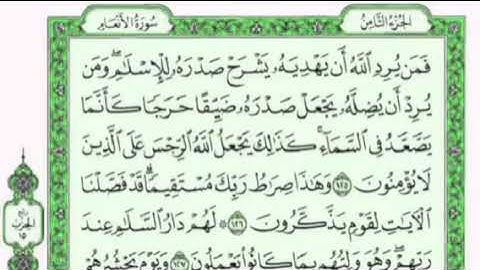 الجزء الثامن
سورة الأنعام
فَمَن يُرِدِ ٱللَّهُ أَن يَهْدِيَهُۥ يَشْرَحْ صَدْرَهُۥ لِلْإِسْلَٰمِ ۖ وَمَن
يُرِدْ أَن يُضِلَّهُۥ يَجْعَلْ صَدْرَهُۥ ضَيِّقًا حَرَجًا كَأَنَّمَا
يَصَّعَّدُ فِى ٱلسَّمَآءِ ۚ كَذَٰلِكَ يَجْعَلُ ٱللَّهُ ٱلرِّجْسَ عَلَى ٱلَّذِينَ
لَا يُؤْمِنُونَ ١٢٥ وَهَٰذَا صِرَٰطُ رَبِّكَ مُسْتَقِيمًا ۗ قَدْ فَصَّلْنَا
ٱلْءَايَٰتِ لِقَوْمٍ يَذَّكَّرُونَ ١٢٦ لَهُمْ دَارُ ٱلسَّلَٰمِ عِندَ
رَبِّهِمْ ۖ وَهُوَ وَلِيُّهُم بِمَا كَانُوا۟ يَعْمَلُونَ ١٢٧ وَيَوْمَ يَحْشُرُهُمْ
الحزب
١٥